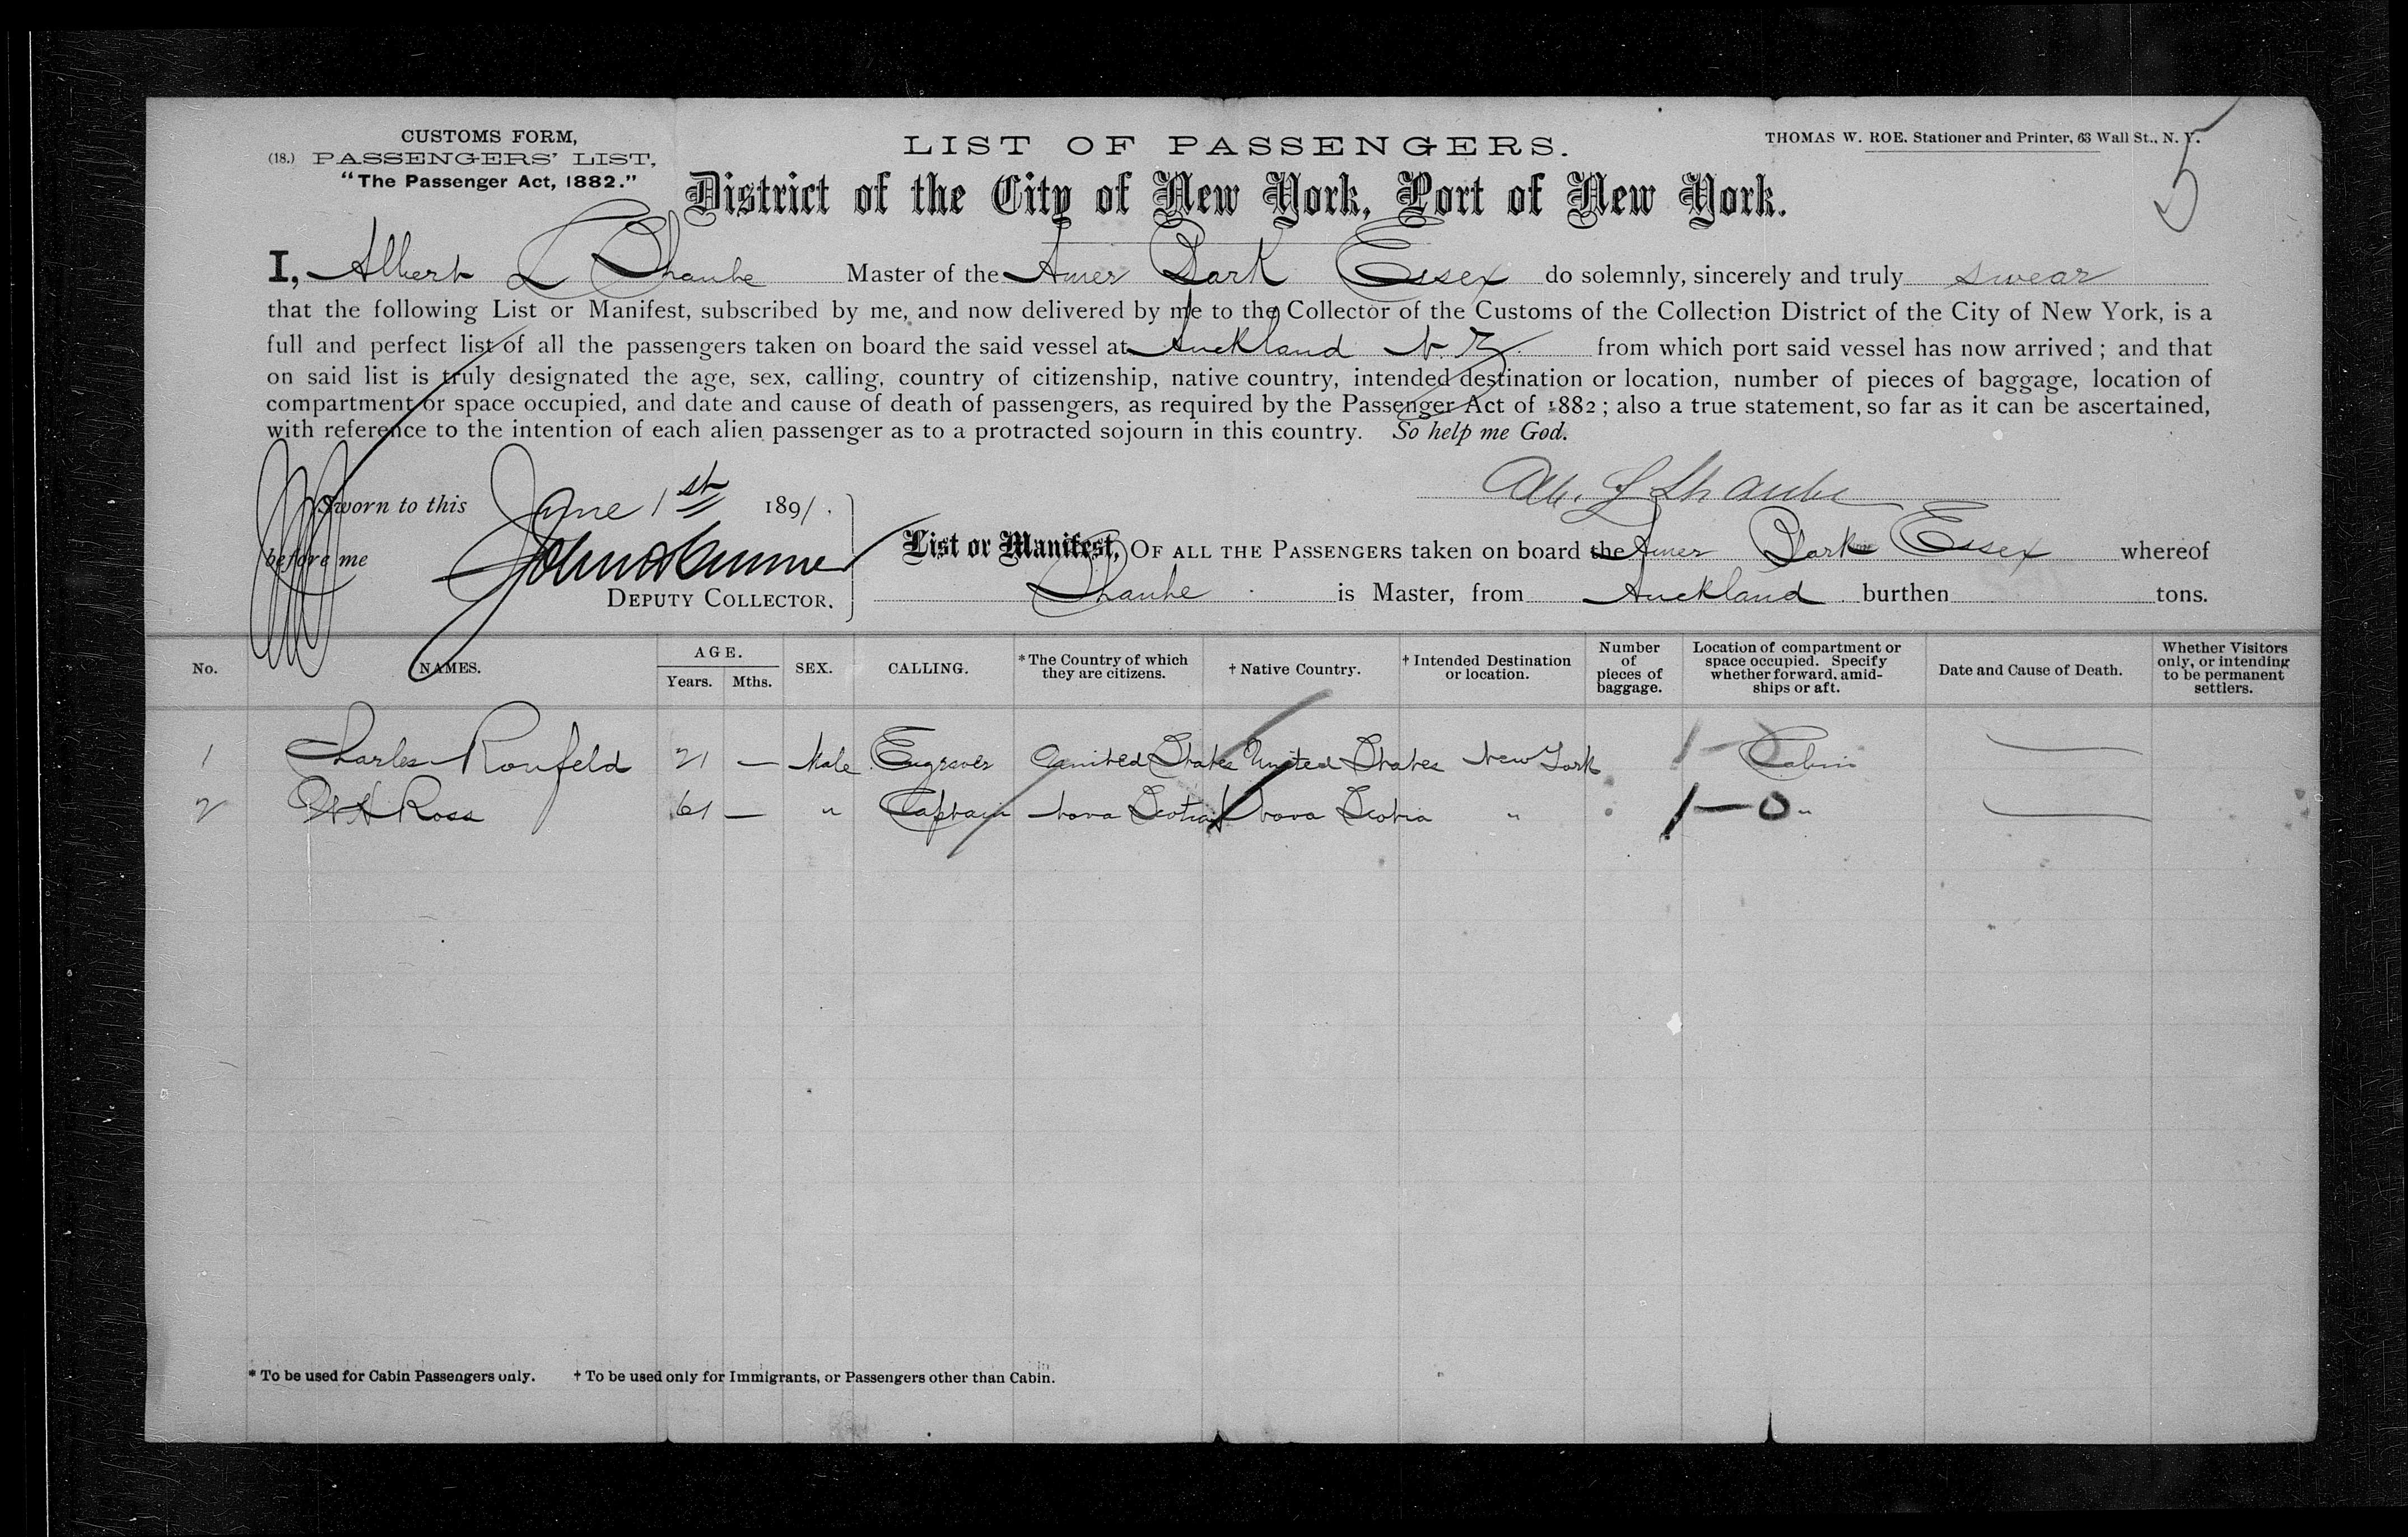 CUSTOMS FORM,
(18.) PASSENGERS' LIST,
"The Passenger Act, 1882."
LIST OF PASSENGERS.
THOMAS W. ROE. Stationer and Printer, 63 Wall St., N. Y.
5
District of the City of New York, Port of New York.
I, Albert L Master of the Amer Bark Essex do solemnly, sincerely and truly swear
that the following List or Manifest, subscribed by me, and now delivered by me to the Collector of the Customs of the Collection District of the City of New York, is a
full and perfect list of all the passengers taken on board the said vessel at Auckland N. Z. from which port said vessel has now arrived; and that
on said list is truly designated the age, sex, calling, country of citizenship, native country, intended destination or location, number of pieces of baggage, location of
compartment or space occupied, and date and cause of death of passengers, as required by the Passenger Act of 1882; also a true statement, so far as it can be ascertained,
with reference to the intention of each alien passenger as to a protracted sojourn in this country. So help me God.
Sworn to this June 1st 1891.
before me
DEPUTY COLLECTOR.
List or Manifest, OF ALL THE PASSENGERS taken on board the Amer Bark Essex whereof
is Master, from Auckland burthen tons.
No. NAMES. AGE. Years. Mths. SEX. CALLING. *The Country of which they are citizens. †Native Country. †Intended Destination or location. Number of pieces of baggage. Location of compartment or space occupied. Specify whether forward, amidships or aft. Date and Cause of Death. Whether Visitors only, or intending to be permanent settlers.
1 Charles Ronfeld 21 — Male Engraver United States United States New York Cabin
2 W H Ross 61 — " Captain Nova Scotia Nova Scotia " 1—0 "
* To be used for Cabin Passengers only. † To be used only for Immigrants, or Passengers other than Cabin.